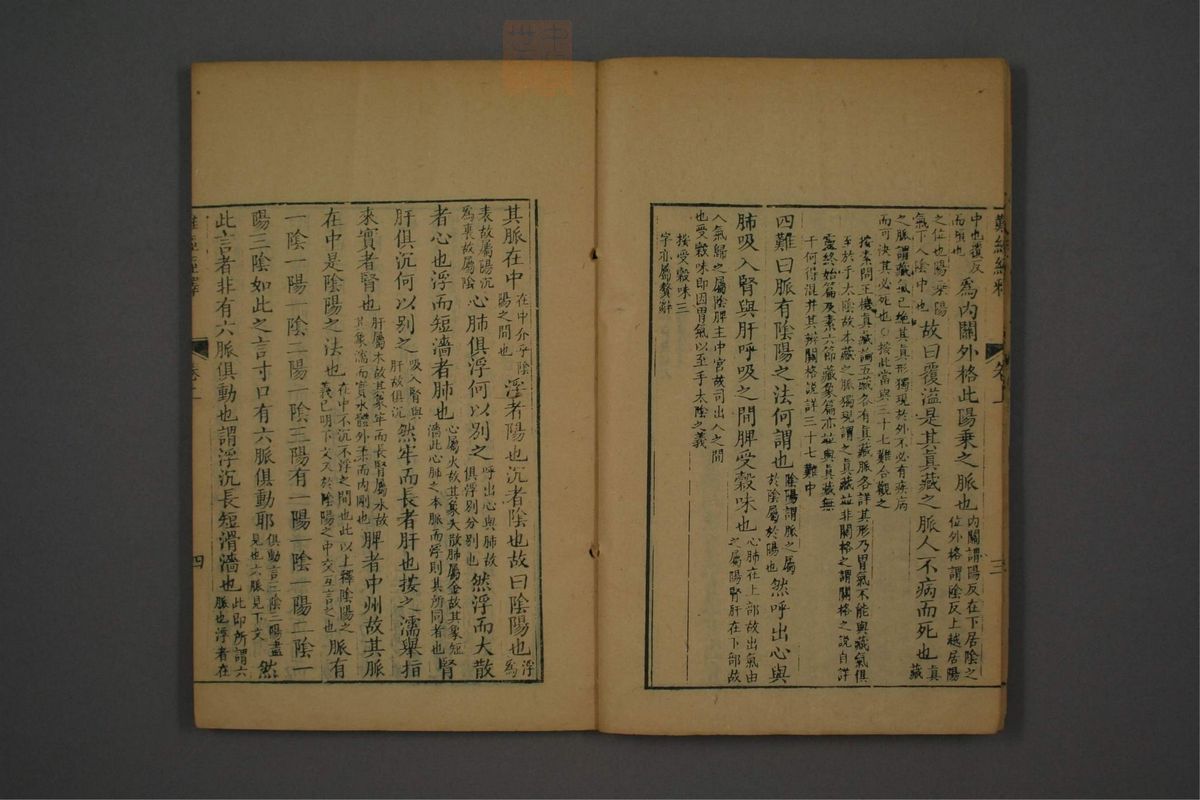 難經經釋 卷上 三
中也覆反
而傾也
爲內關外格此陽乘之脈也
內關謂陽反在下居陰之
位外格謂陰反上越居陽
之位也陽乘陽
氣下入陰中也
故曰覆溢是其眞藏之脈人不病而死也
眞
藏
之脈謂藏氣已絕其眞形獨現於外不必有疾病
而可決其必死也○按此當與三十七難合觀之
按素問玉機眞藏論五藏各有眞藏脈各詳其形乃胃氣不能與藏氣俱
至於手太陰故本藏之脈獨現謂之眞藏並非關格之謂關格之說自詳
靈終始篇及素六節藏象篇亦並與眞藏無
干何得混并其辨關格說詳三十七難中
四難曰脈有陰陽之法何謂也
陰陽謂脈之屬
於陰屬於陽也
然呼出心與
肺吸入腎與肝呼吸之間脾受穀味也
心肺在上部故出氣由
之屬陽腎肝在下部故
入氣歸之屬陰脾主中宮故司出入之間
也受穀味即因胃氣以至手太陰之義
按受穀味三
字亦屬贅辭
其脈在中
在中介乎陰
陽之間也
浮者陽也沉者陰也故曰陰陽也
浮
爲
表故屬陽沉
爲裏故屬陰
心肺俱浮何以別之
呼出心與肺故
俱浮別分別也
然浮而大散
者心也浮而短濇者肺也
心屬火故其象大散肺屬金故其象短
濇此心肺之本脈而浮則其所同者也
腎
肝俱沉何以別之
吸入腎與
肝故俱沉
然牢而長者肝也按之濡舉指
來實者腎也
肝屬木故其象牢而長腎屬水故
其象濡而實水體外柔而內剛也
脾者中州故其脈
在中是陰陽之法也
在中不沉不浮之間也此以上釋陰陽之
義已明下文又於陰陽之中交互言之也
脈有
一陰一陽一陰二陽一陰三陽有一陽一陰一陽二陰一
陽三陰如此之言寸口有六脈俱動耶
俱動言三陰三陽盡
見也六脈見下文
然
此言者非有六脈俱動也謂浮沉長短滑濇也
此即所謂六
脈也浮者在
難經經釋 卷上 四